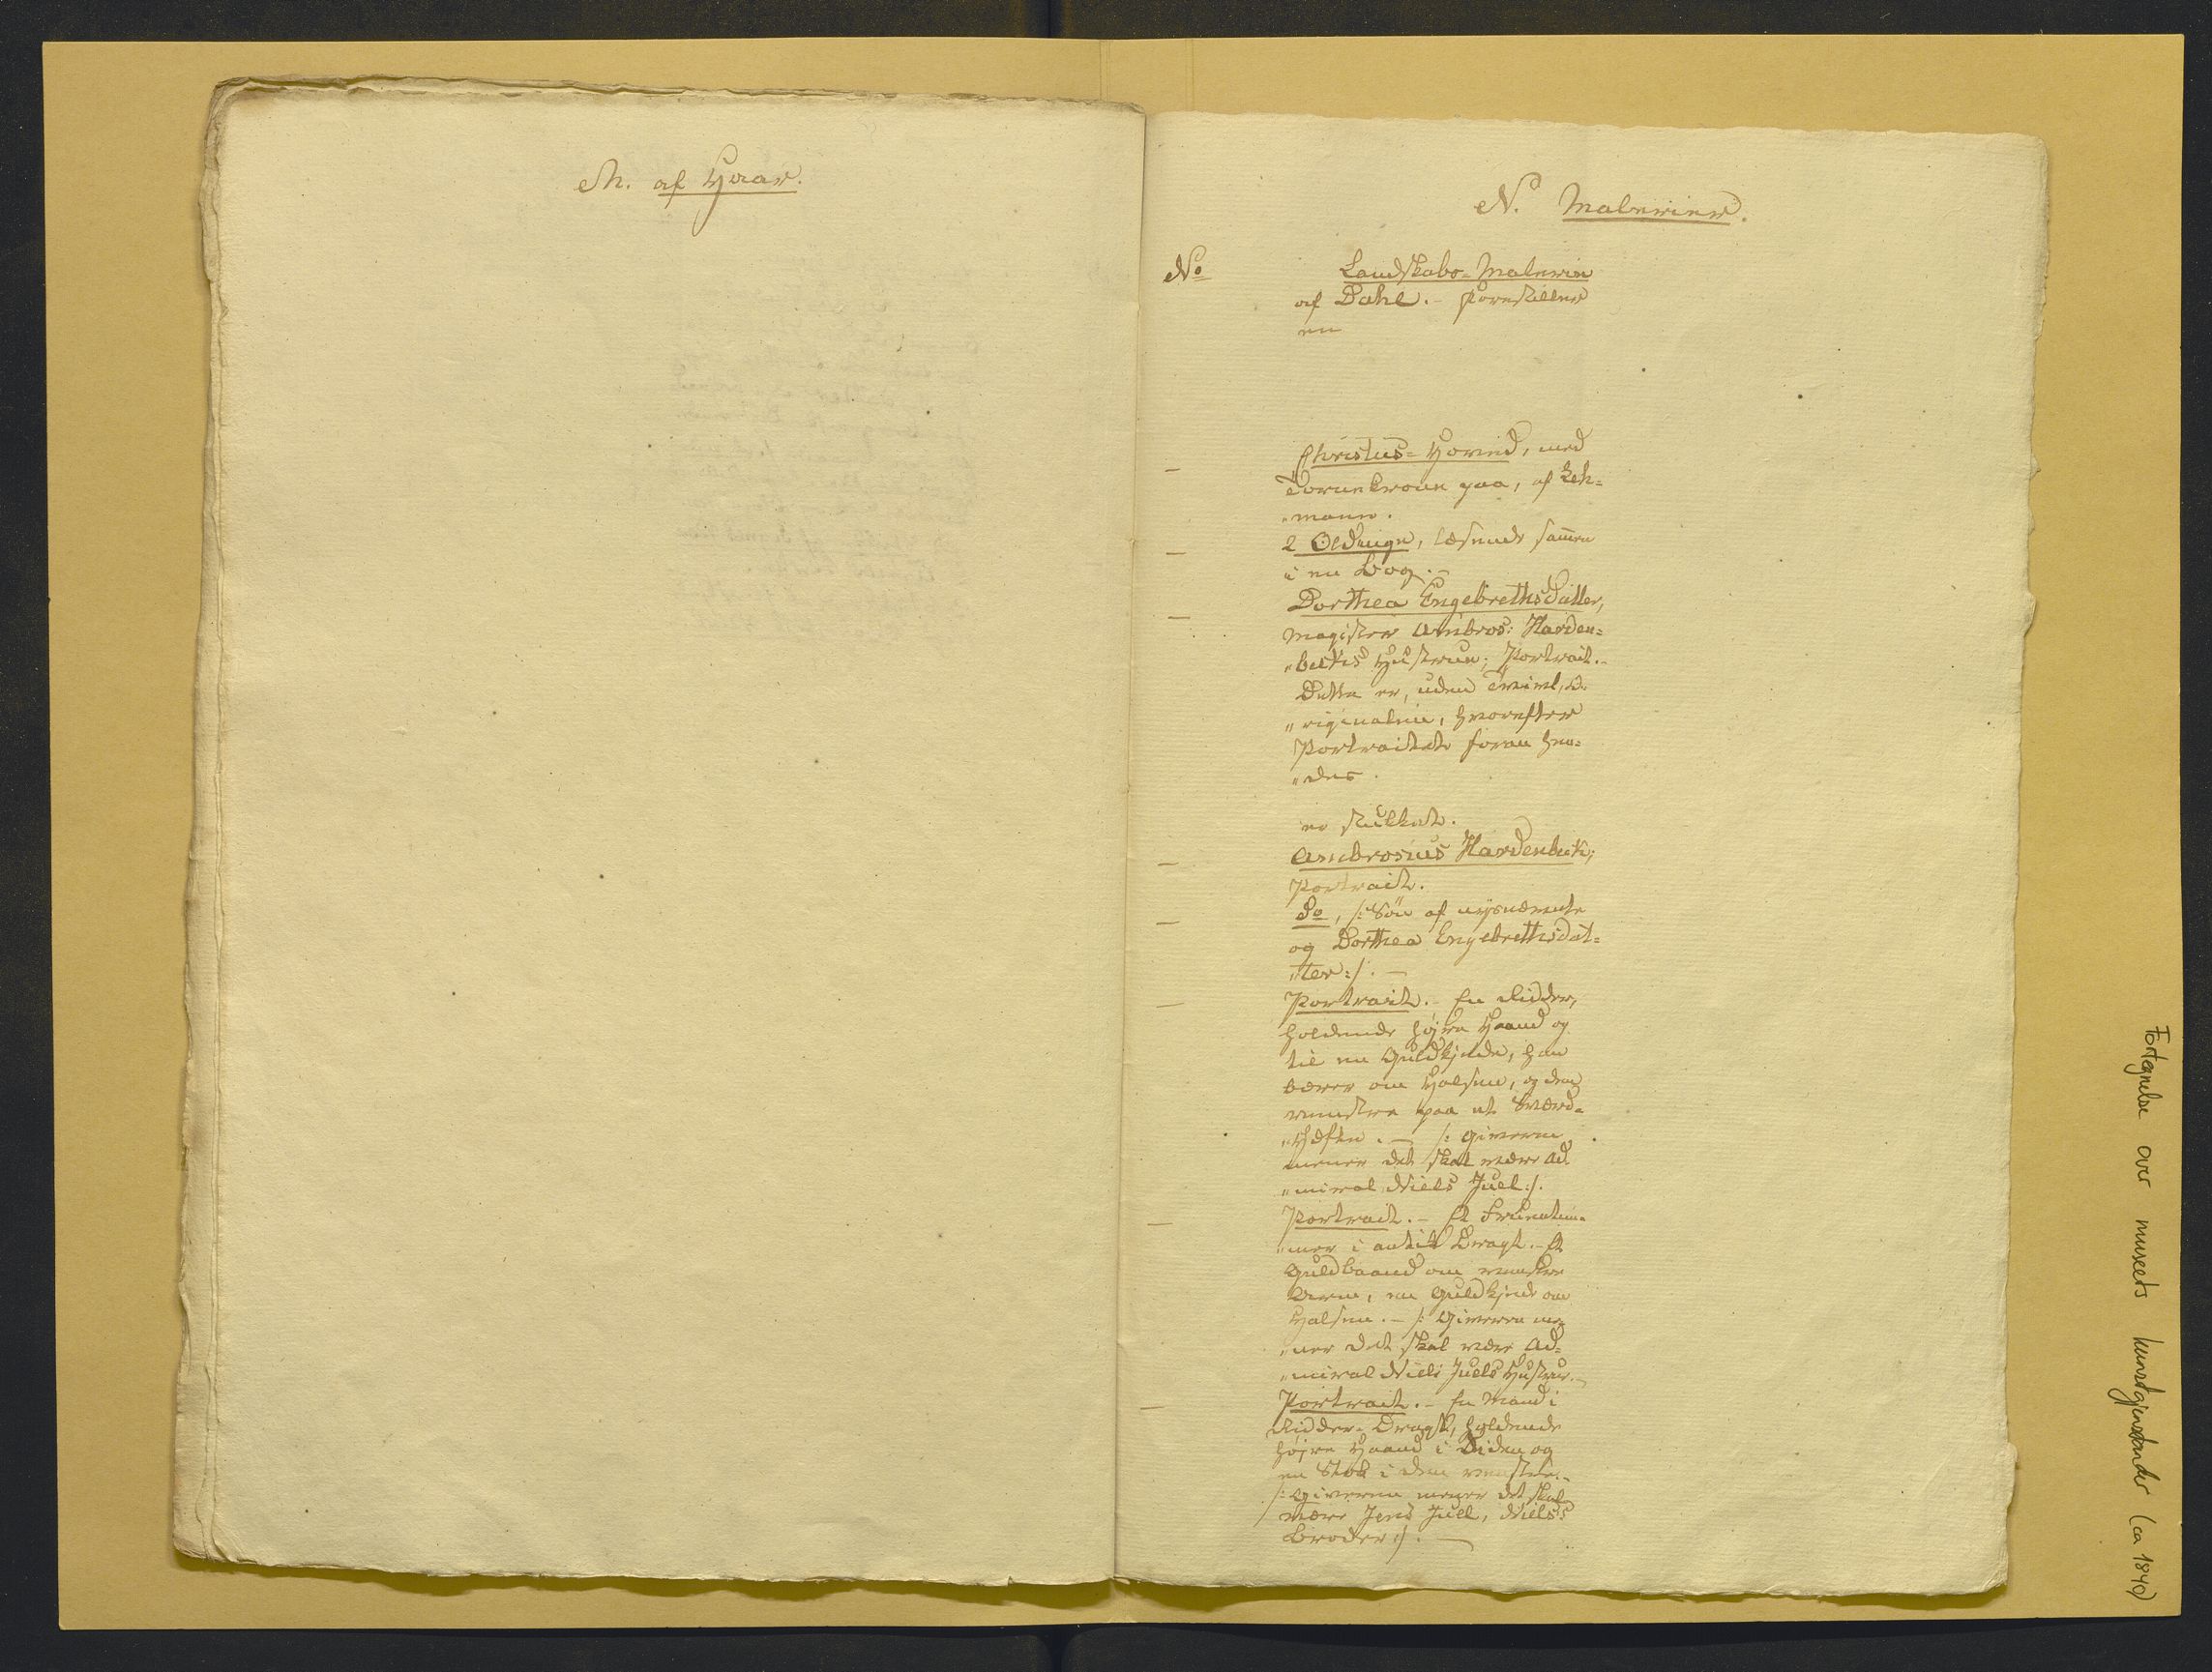 M. af Haar.
N. Malerier.
No Landskabs-Malerie
af Dahl. - Forestiller
en
- Christus-Hoved, med
Tornekrone paa, af Leh=
"mann.
- 2 Oldinge, læsende sam̄en
i en Bog. -
- Dorthea Engebrethsdatter,
Magister Ambros: Harden=
"becks Hustrue; Portrait. -
Dette er, uden Tvivl, O-
"riginalen, hvorefter
Portraitet foran hen=
"des
er stukket.
- Ambrosius Hardenbeck;
Portrait.
- Do, /: Søn af nysnævnte
og Dorthea Engebrethsdat=
"ter :/. -
- Portrait. - En Ridder,
holdende højre Haand op
til en Guldkjede, han
bærer om Halsen, og den
venstre paa et Sværd=
"Hæfte. - /: Giveren
mener det skal være Ad-
"miral Niels Juel :/.
- Portrait. - Et Fruentim-
"mer i antik Dragt. - Et
Guldbaand om venstre
Arm, en Guldkjede om
Halsen. - /: Giveren me-
"ner det skal være Ad=
"miral Niels Juels Hustrue. -
- Portrait. - En Mand i
Ridder-Dragt, holdende
højre Haand i Siden og
en Stok i den venstre. -
/: Giveren mener det skal
være Jens Juel, Niels's
Broder :/. -
Fortegnelse over museets kunstgjenstander (ca 1840)